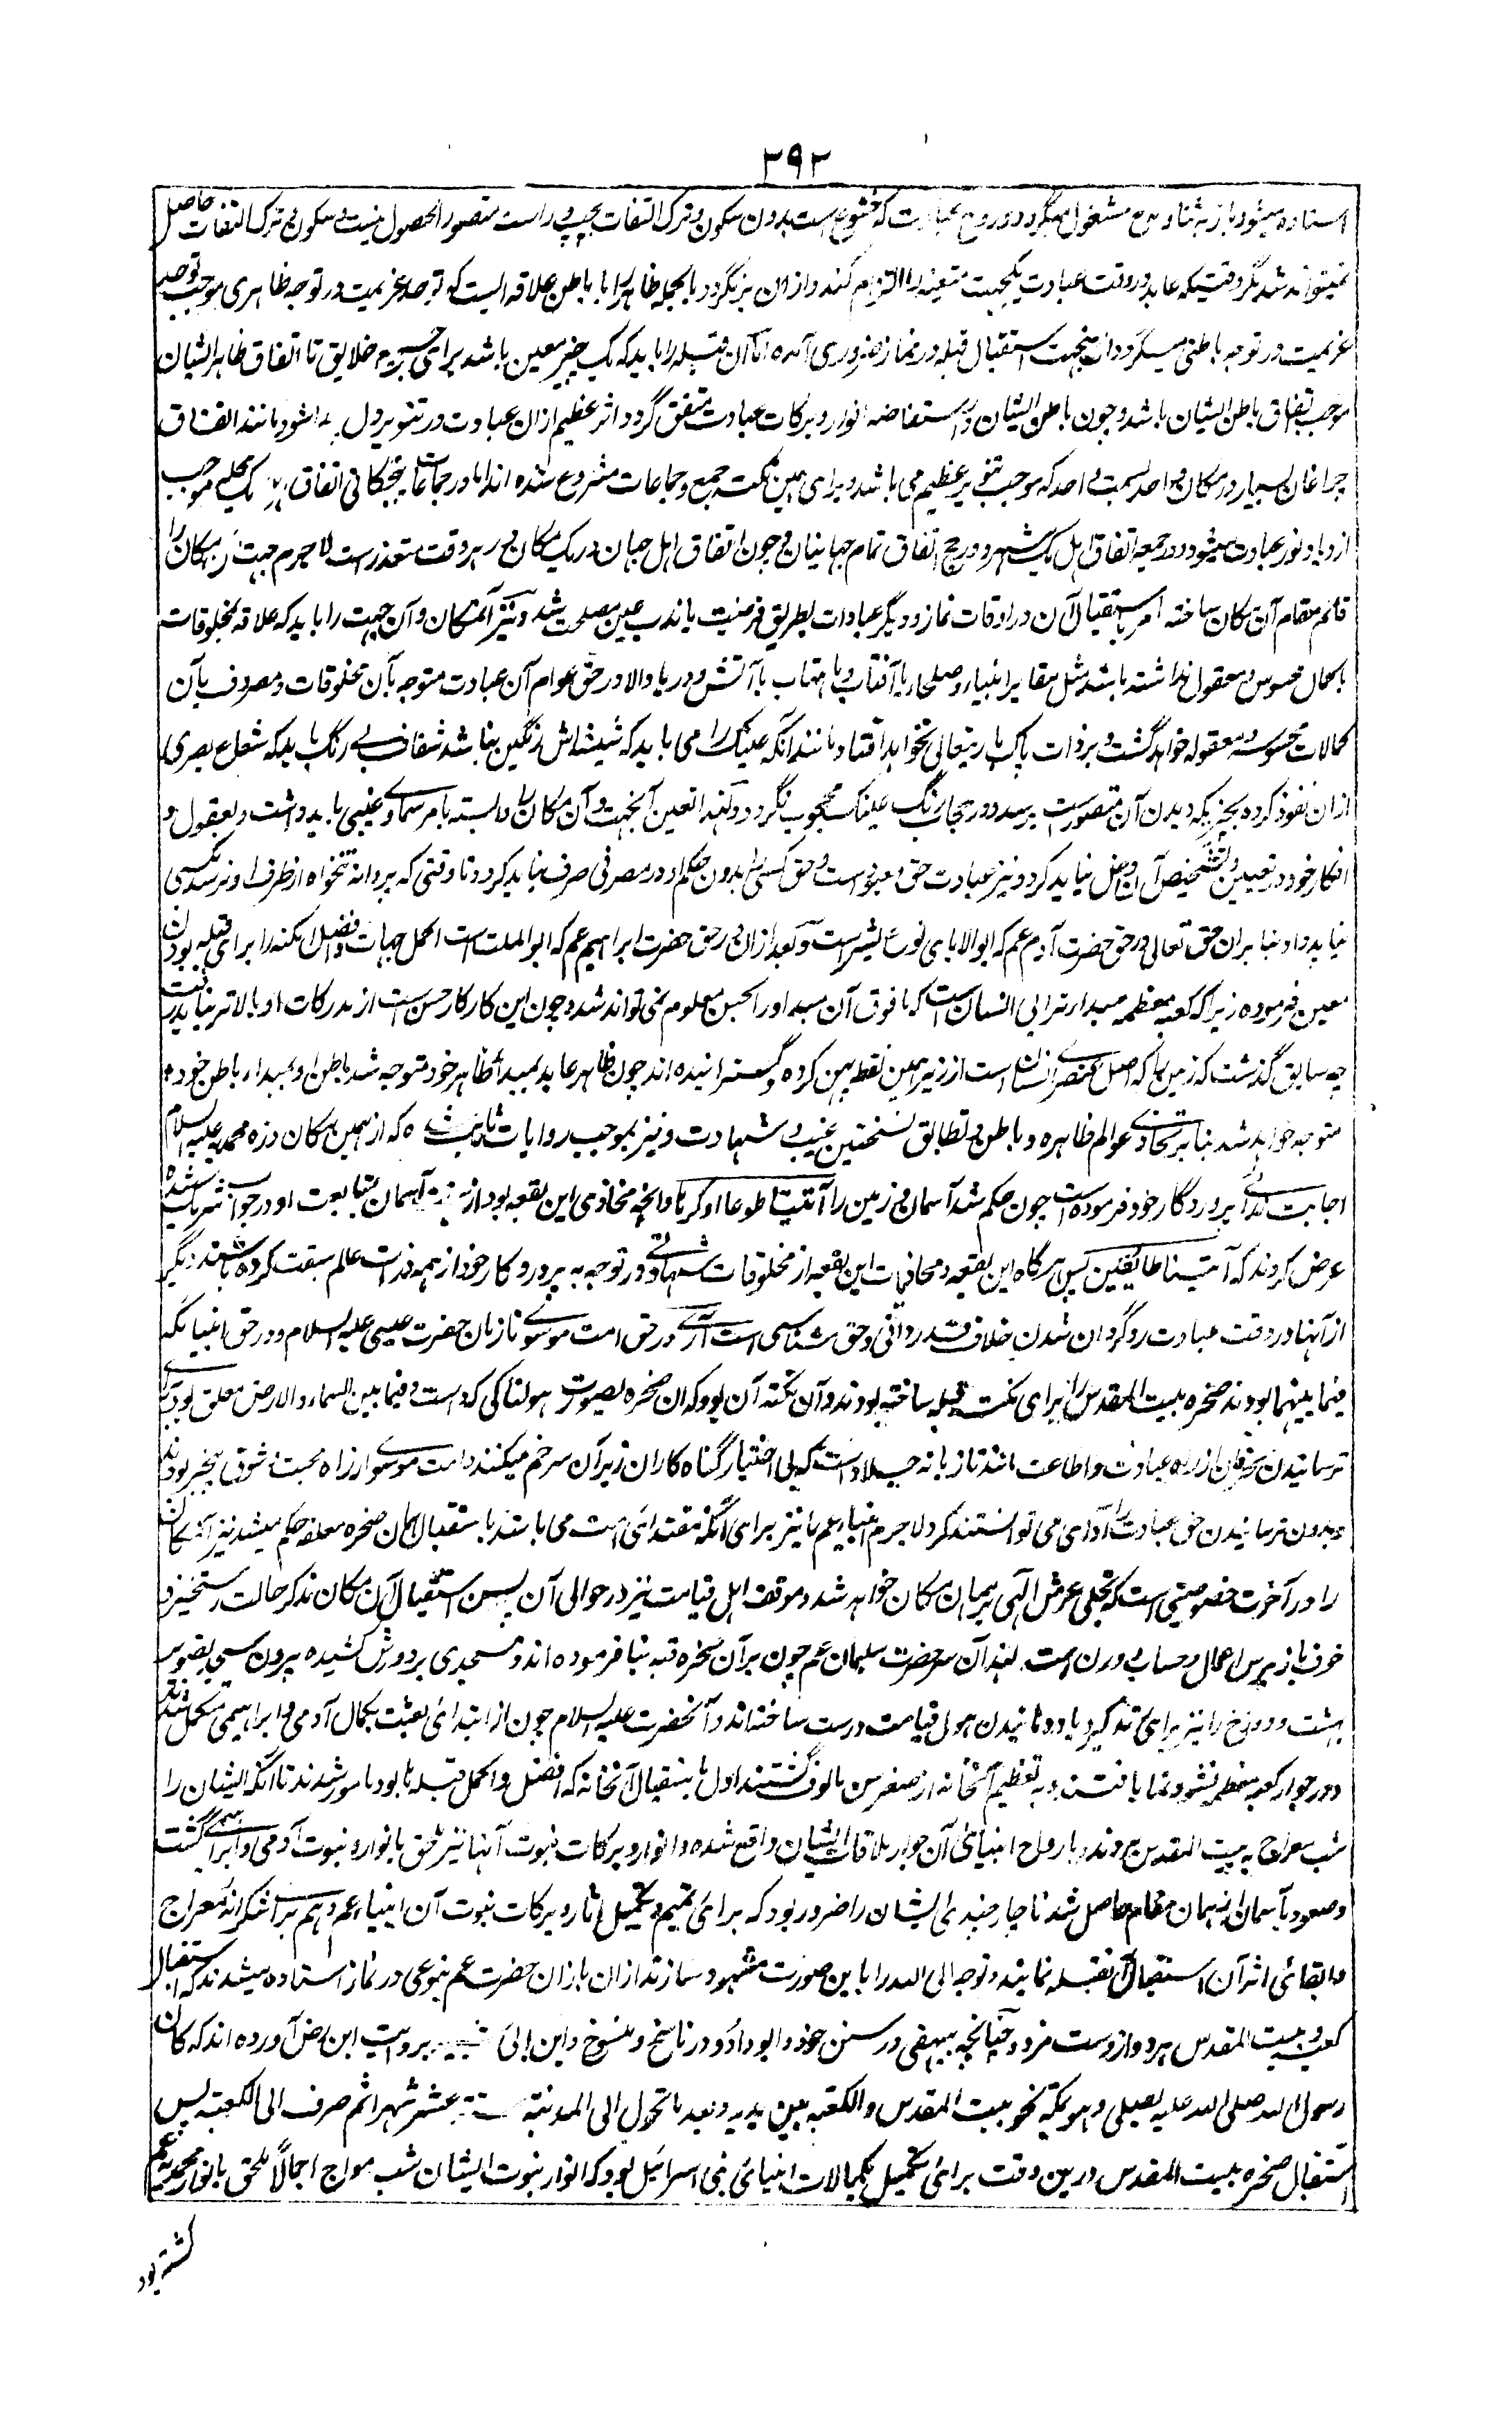 ۳۹۳
استاده میشود باز به ثنا و مدح مشغول میگردد و روح عبادت که خشوع است بدون سکون و ترک التفات بچپ و راست متصور الحصول نیست و سکون و ترک التفات حاصل
نمیتواند شد مگر وقتیکه عابد در وقت عبادت یکجهت متعینه را التزام کند و ازان برنگردد بالجمله ظاهر را با باطن علاقه ایست که توحد عزیمت در توجه ظاهری موجب توحد
عزیمت در توجه باطنی میگردد ازینجهت استقبال قبله در نماز ضروری آمده اما آن قبله را باید که یک چیز معین باشد برای جمیع خلایق تا اتفاق ظاهر ایشان
موجب اتفاق باطن ایشان باشد و چون باطن ایشان در استفاضه انوار و برکات عبادت متفق گردد اثر عظیم ازان عبادت در تنویر دل پیدا شود مانند اتفاق
چراغان بسیار در مکان واحد بسمت واحد که موجب تنویر عظیم می باشد و برای همین نکته جمع و جماعات مشروع شده اند اما در جماعات پنجگانی اتفاق یک محله موجب
ازدیاد نور عبادت میشود و در جمعه اتفاق اهل یک شهر و در حج اتفاق تمام جهانیان و چون اتفاق اهل جهان در یک مکان در هر وقت متعذر است لاجرم جهت آن مکان را
قائم مقام آن مکان ساخته امر باستقبال آن در اوقات نماز و دیگر عبادات بطریق فرضیت یا ندب عین مصلحت شد و نیز آنمکان و آن جهت را باید که علاقه بمخلوقات
باکمال محسوس و معقول نداشته باشد مثل مقابر انبیاء و صلحا یا آفتاب یا ماهتاب یا آتش و دریا و الا در حق عوام آن عبادت متوجه بآن مخلوقات و مصروف بآن
کمالات محسوسه و معقوله خواهد گشت و بر ذات پاک باریتعالی نخواهد افتاد مانند آنکه عینک را می باید که شیشه اش رنگین نباشد شفاف بی رنگ باید که شعاع بصری
ازان نفوذ کرده بچیزیکه دیدن آن مقصود است برسد و در حجاب رنگ عینک محجوب نگردد و لهذا تعین آنجهت و آن مکان را وابسته بامر سماوی و غیبی باید داشت و بعقول و
افکار خود در تعیین و تشخیص آن دخل نباید کرد و نیز عبادت حق معبود است و حق کسی را بدون حکم او در مصرفی صرف نباید کرد و تا وقتی که پروانه تنخواه از طرف او نرسد بکسی
نباید داد بنا بران حق تعالی در حق حضرت آدم عم که ابو الآبای نوع بشر است و بعد ازان در حق حضرت ابراهیم عم که ابو الملت است اکمل جهات و افضل امکنه را برای قبله بودن
معین فرموده زیرا که کعبه معظمه مبداء ترابی انسان است که ما فوق آن مبداء او را بحس معلوم نمی تواند شد و چون این کار کار حس است از مدرکات او بالاتر نباید رفت
چه سابق گذشت که زمین را که اصل عنصری انسان است از زیر همین نقطه پهن کرده و گسترانیده اند چون ظاهر عابد بمبداء ظاهر خود متوجه شد باطن او بمبداء باطن خود
متوجه خواهد شد بنا بر تحاذی عوالم ظاهره و باطن و تطابق نسختین غیب و شهادت و نیز بموجب روایات ثابت شده که از همین مکان ذره محمدیه علیه السلام
اجابت ندای پروردگار خود فرموده است چون حکم شد آسمان و زمین را آئتیا طوعا او کرها و آنچه محاذی این بقعه بود از آسمان بمتابعت او در جواب شریک شده
عرض کردند که آتینا طائعین پس هرگاه این بقعه و محاذیات این بقعه از مخلوقات شهادی در توجه به پروردگار خود از همه ذرات عالم سبقت کرده باشند دیگر
از آنها در وقت عبادت روگردان شدن خلاف قدردانی و حق شناسی است آری در حق امت موسوی تا زمان حضرت عیسی علیه السلام و در حق انبیائیکه
فیما بینهما بودند صخره بیت المقدس را نیز برای نکته قبله ساخته بودند و آن نکته آن بود که آن صخره بصورت هولناکی که داشت و فیما بین السماء و الارض معلق بود برای
ترسانیدن منحرفان از راه عبادت و اطاعت مانند تازیانه جلاد است که بی اختیار گناه کاران زیر آن سر خم میکنند و امت موسوی از راه محبت و شوق بیخبر بودند
و بدون ترسانیدن حق عبادت را ادای می توانستند کرد لاجرم انبیاء بلهم را نیز برای آنکه مقتدای امت می باشند باستقبال همان صخره معلقه حکم میشد نیز آن مکان
را در آخرت خصوصیتی است که تجلی عرش الهی بر همان مکان خواهد شد و موقف اهل قیامت نیز در حوالی آن پس استقبال آن مکان مذکر حالت رستخیز و
خوف باز پرس اعمال و حساب و وزن است لهذا آن سر حضرت سلیمان عم چون بر آن صخره قبه بنا فرموده اند و مسجدی بر دورش کشیده بیرون مسجد تصویر
بهشت و دوزخ را نیز برای تذکیر و یاد دهانیدن هول قیامت درست ساخته اند و آنحضرت علیه السلام چون از ابتدای بعثت بکمال آدمی و ابراهیمی متکمل شدند
و در جوار کعبه معظمه نشو و نما یافتند و به تعظیم آنخانه از صغر سن مالوف گشتند اول باستقبال آنخانه که افضل و اکمل قبله ها بود مامور شدند تا آنکه ایشان را
شب معراج به بیت المقدس بردند و بارواح انبیای آن جوار ملاقات ایشان واقع شده و انوار و برکات نبوت آنها نیز ملحق بانوار و نبوت آدمی و ابراهیمی گشت
و صعود بآسمان از همان مقام حاصل شد ناچار چندی ایشان را ضرور بود که برای تتمیم و تکمیل آثار و برکات نبوت آن انبیاء عم و هم برای شکرانه معراج
و ابقای اثر آن استقبال آن قبله نمایند و توجه الی الله را باین صورت مشهود سازند ازان باز آن حضرت عم بنوعی در نماز استاده میشدند که استقبال
کعبه و بیت المقدس هر دو از دست نرود چنانچه بیهقی در سنن خود و ابو داؤد در ناسخ و منسوخ و ابن ابی شیبه بروایت ابن عباس رض آورده اند که کان
رسول الله صلی الله علیه یصلی و هو بمکة نحو بیت المقدس و الکعبة بین یدیه و بعد ما تحول الی المدینة ستة عشر شهرا ثم صرف الی الکعبة پس
استقبال صخره بیت المقدس درین وقت برای تکمیل بکمالات انبیای بنی اسرائیل بود که انوار نبوت ایشان شب معراج اجمالا ملحق بانوار محمدیه عم
گشته بود